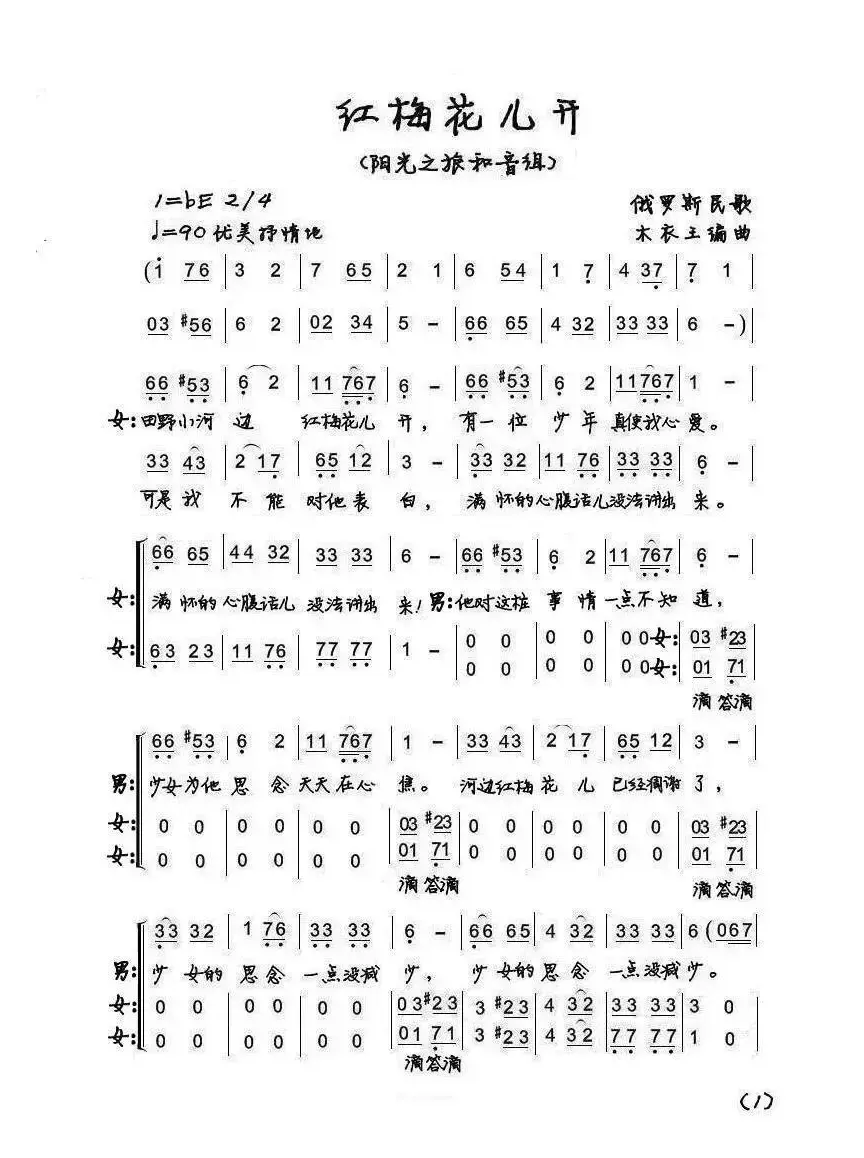 红梅花儿开
(阳光之旅和音组)
1=bE 2/4
俄罗斯民歌
♩=90 优美抒情地
木衣王编曲
(1 76 | 3 2 | 7 65 | 2 1 | 6 54 | 1 7 | 4 37 | 7 1 |
03 #56 | 6 2 | 02 34 | 5 – | 66 65 | 4 32 | 33 33 | 6 –) |
66 #53 | 6 2 | 11 767 | 6 – | 66 #53 | 6 2 | 11 767 | 1 – |
女: 田野小河 边 红梅花儿 开, 有一位 少年 真使我心爱。
33 43 | 2 17 | 65 12 | 3 – | 33 32 | 11 76 | 33 33 | 6 – |
可是我 不能 对他表 白, 满怀的心腹话儿没法讲出 来。
66 65 | 44 32 | 33 33 | 6 – | 66 #53 | 6 2 | 11 767 | 6 – |
女: 满怀的心腹话儿 没法讲出 来! 男: 他对这桩 事情一点不知 道,
女: 63 23 | 11 76 | 77 77 | 1 – | 0 0 | 0 0 | 0 0 女: | 03 #23 |
0 0 | 0 0 | 0 0 女: | 01 71 |
滴答滴
66 #53 | 6 2 | 11 767 | 1 – | 33 43 | 2 17 | 65 12 | 3 – |
男: 少女为他 思念 天天在心 焦。 河边红梅 花儿 已经凋谢 了,
女: 0 0 | 0 0 | 0 0 | 03 #23 | 0 0 | 0 0 | 0 0 | 03 #23 |
女: 0 0 | 0 0 | 0 0 | 01 71 | 0 0 | 0 0 | 0 0 | 01 71 |
滴答滴 滴答滴
33 32 | 1 76 | 33 33 | 6 – | 66 65 | 4 32 | 33 33 | 6 (067 |
男: 少女的 思念 一点没减 少, 少女的 思念 一点没减少。
女: 0 0 | 0 0 | 0 0 | 03 #23 | 3 #23 | 4 32 | 33 33 | 3 0 |
女: 0 0 | 0 0 | 0 0 | 01 71 | 3 #23 | 4 32 | 77 77 | 1 0 |
滴答滴
(1)